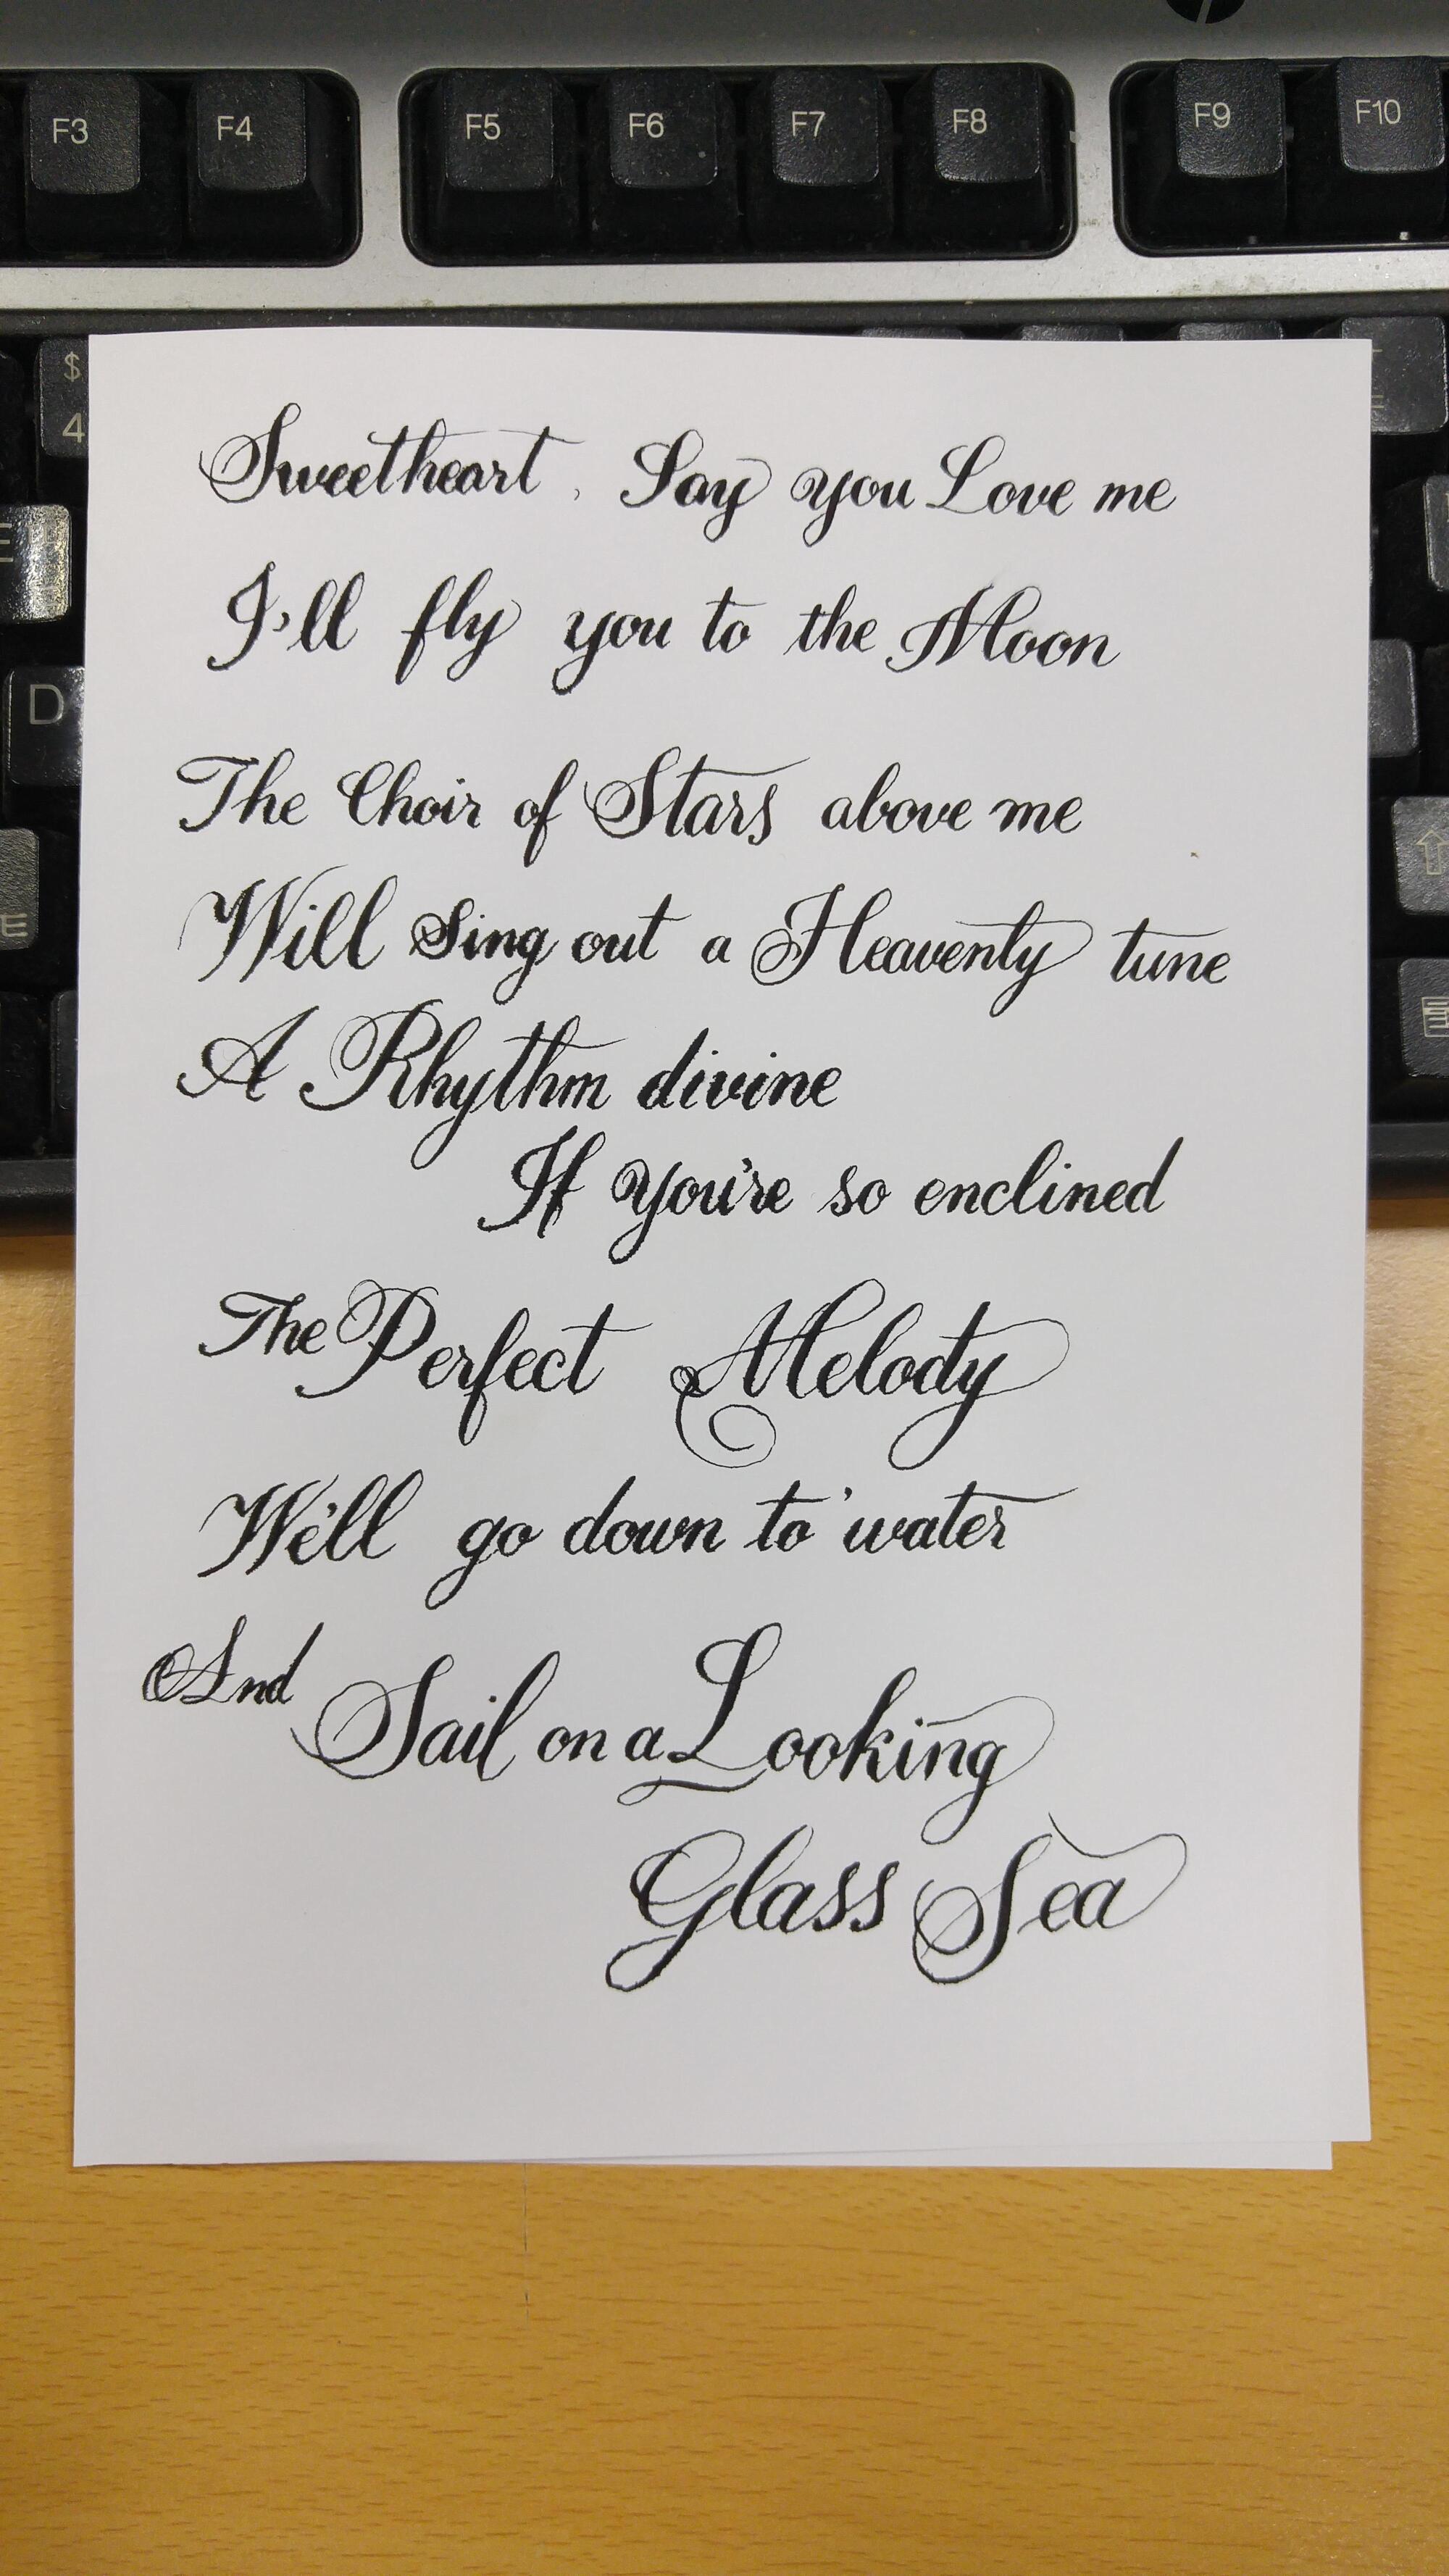 F3 F4 F5 F6 F7 F8 F9 F10
$
4
E
D
E
Sweetheart, Say you Love me
I'll fly you to the Moon
The Choir of Stars above me
Will Sing out a Heavenly tune
A Rhythm divine
If you're so enclined
The Perfect Melody
We'll go down to' water
And Sail on a Looking
Glass Sea